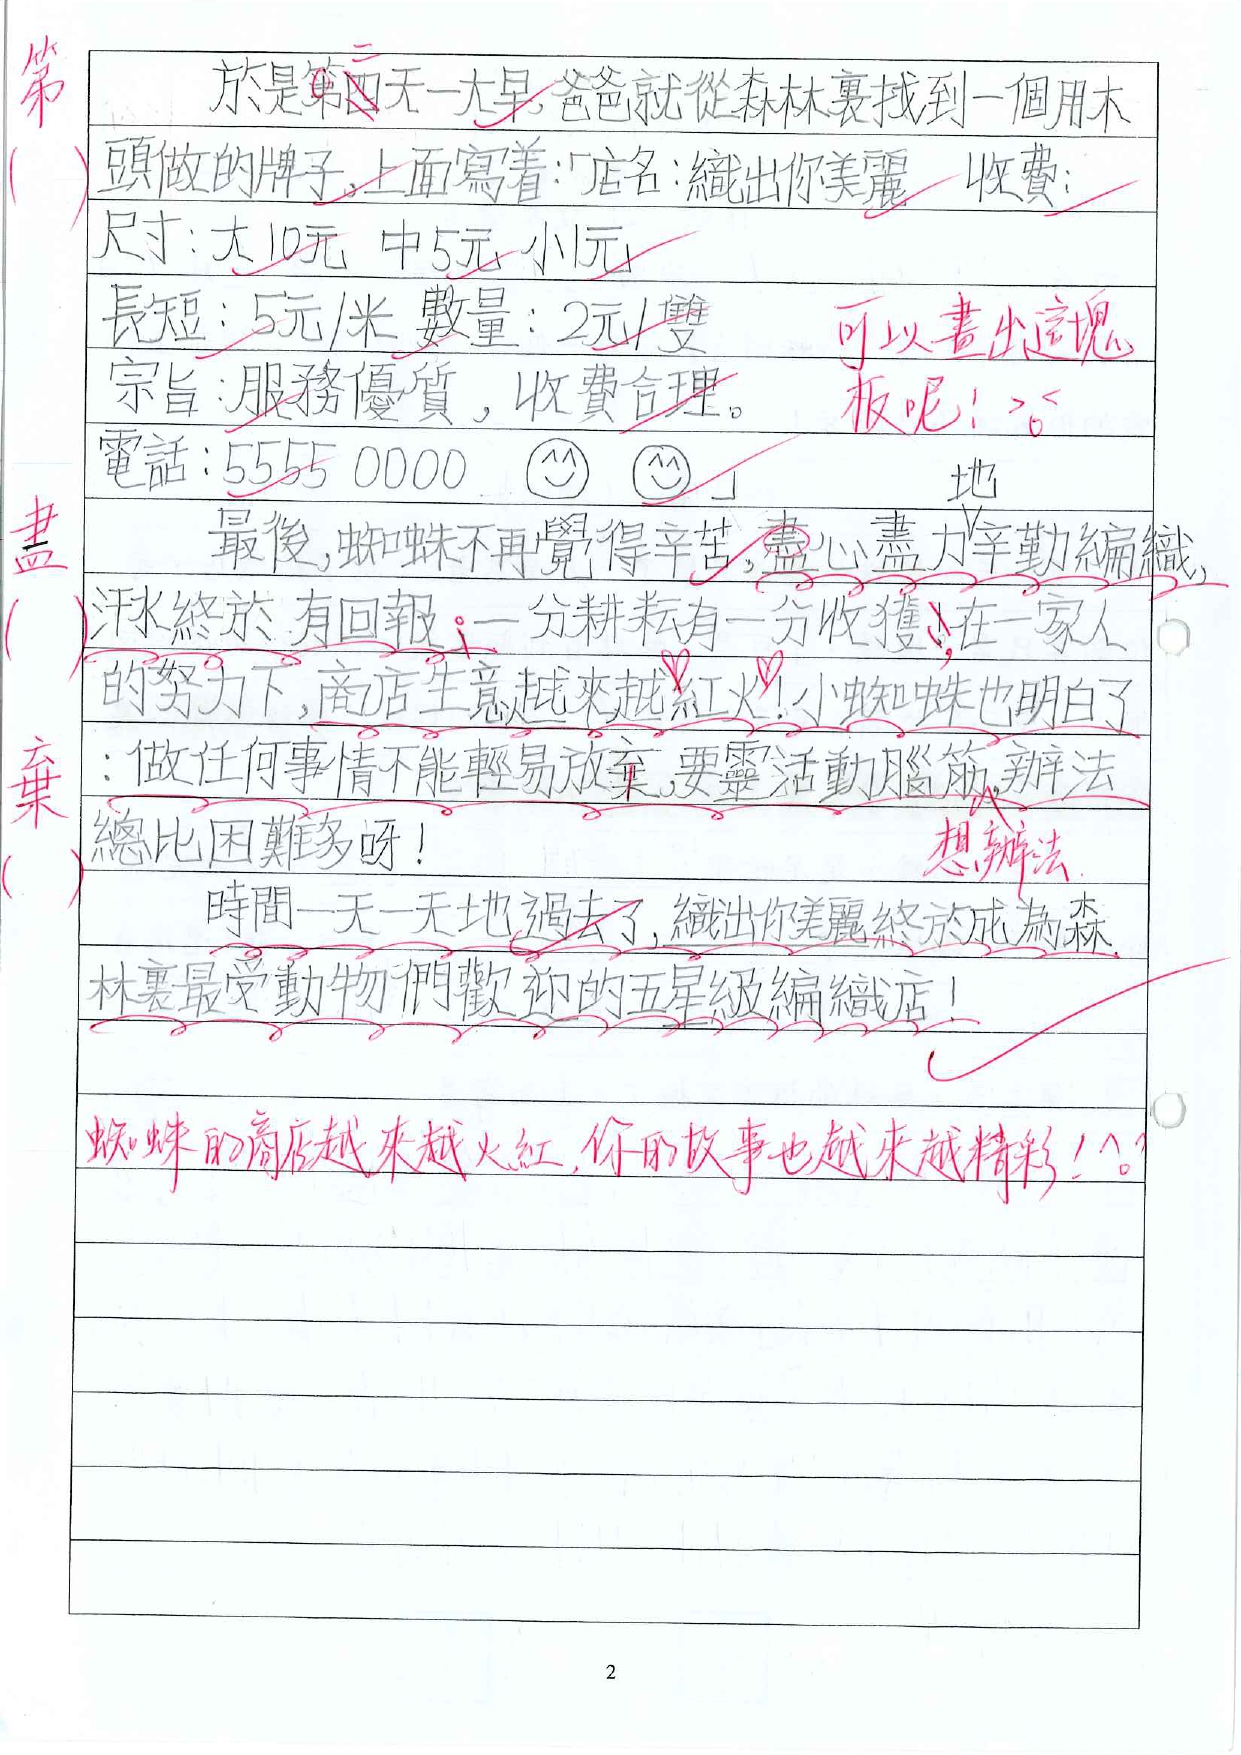 第
二
於是第四天一大早，爸爸就從森林裏找到一個用木
( )
頭做的牌子，上面寫着：「店名：織出你美麗 收費：
尺寸：大10元 中5元 小1元
長短：5元/米 數量：2元/雙
可以畫出這塊
宗旨：服務優質，收費合理。
板呢！
電話：5555 0000 」
地
盡
最後，蜘蛛不再覺得辛苦，盡心盡力辛勤編織，
( )
汗水終於有回報；一分耕耘有一分收獲！，在一家人
的努力下，商店生意越來越紅火！小蜘蛛也明白了
棄
：做任何事情不能輕易放棄，要靈活動腦筋，辦法
總比困難多呀！
想辦法
( )
時間一天一天地過去了，織出你美麗終於成為森
林裏最受動物們歡迎的五星級編織店！
蜘蛛的商店越來越火紅，你的故事也越來越精彩！
2